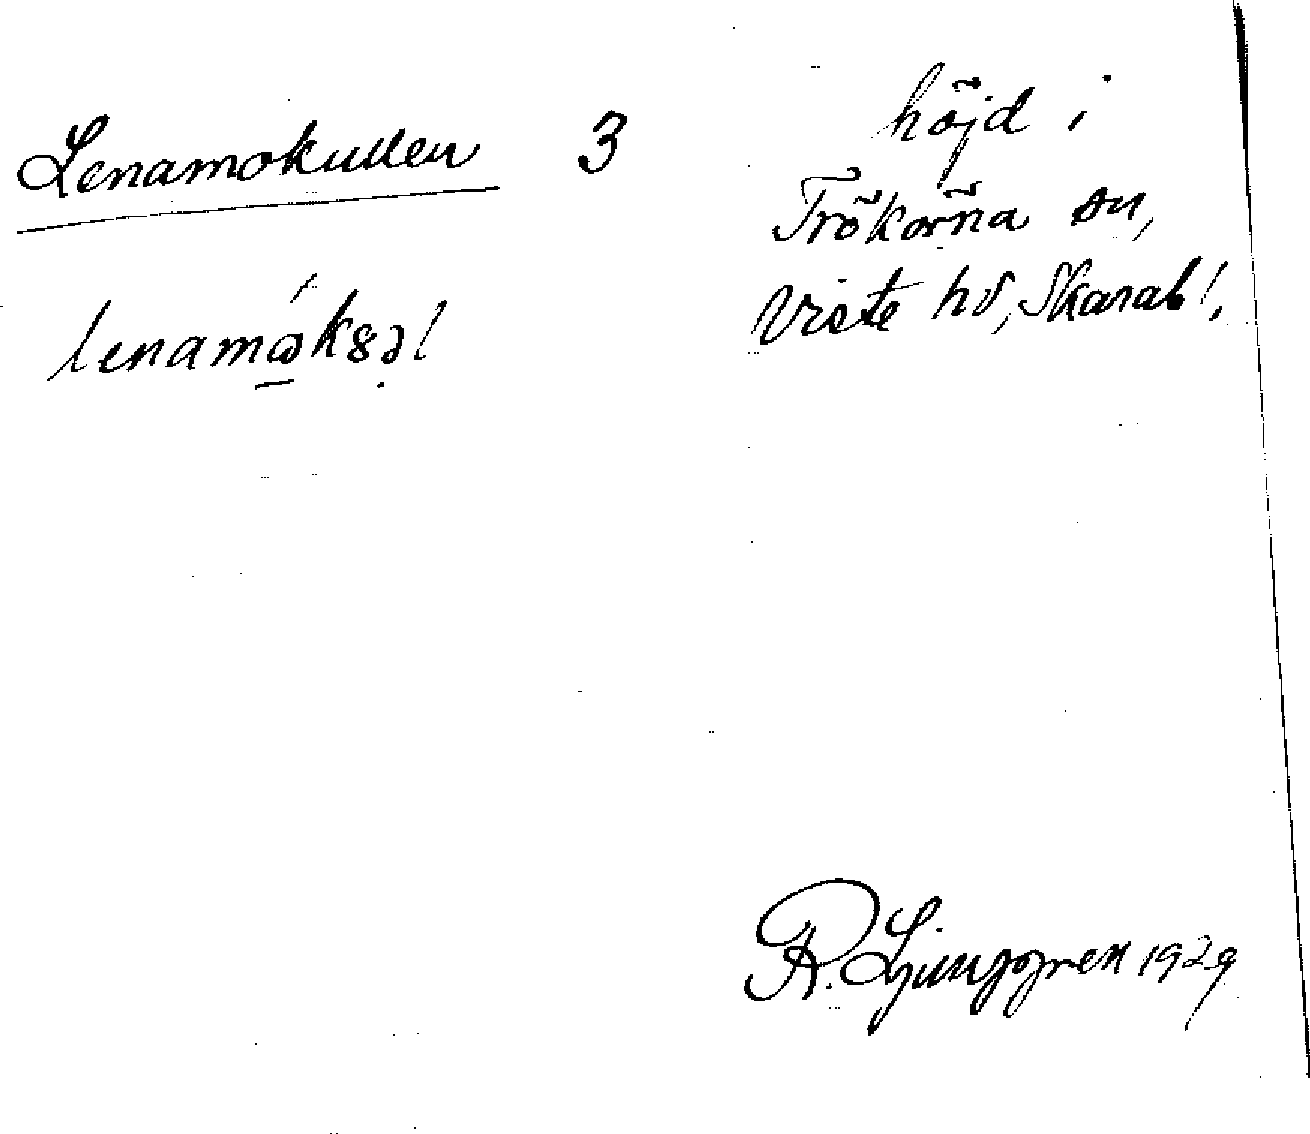 Lenamokullen 3
höjd i
Trökörna sn,
Viste hd, Skarab!.
R. Ljunggren 1929